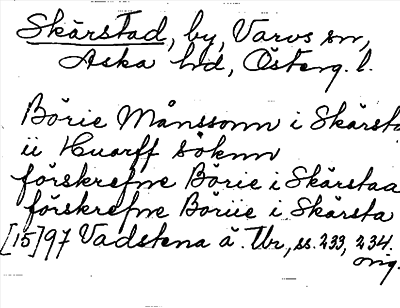 Skärstad, by, Varvs sn,
Aska hd, Österg. l.
Börie Månssonn i Skärsta
ii Huarff söknn
förskrefne Börie i Skärstaa
förskrefne Böriie i Skärsta
[15]97 Vadstena ä. Tbr, ss. 233, 234.
orig.